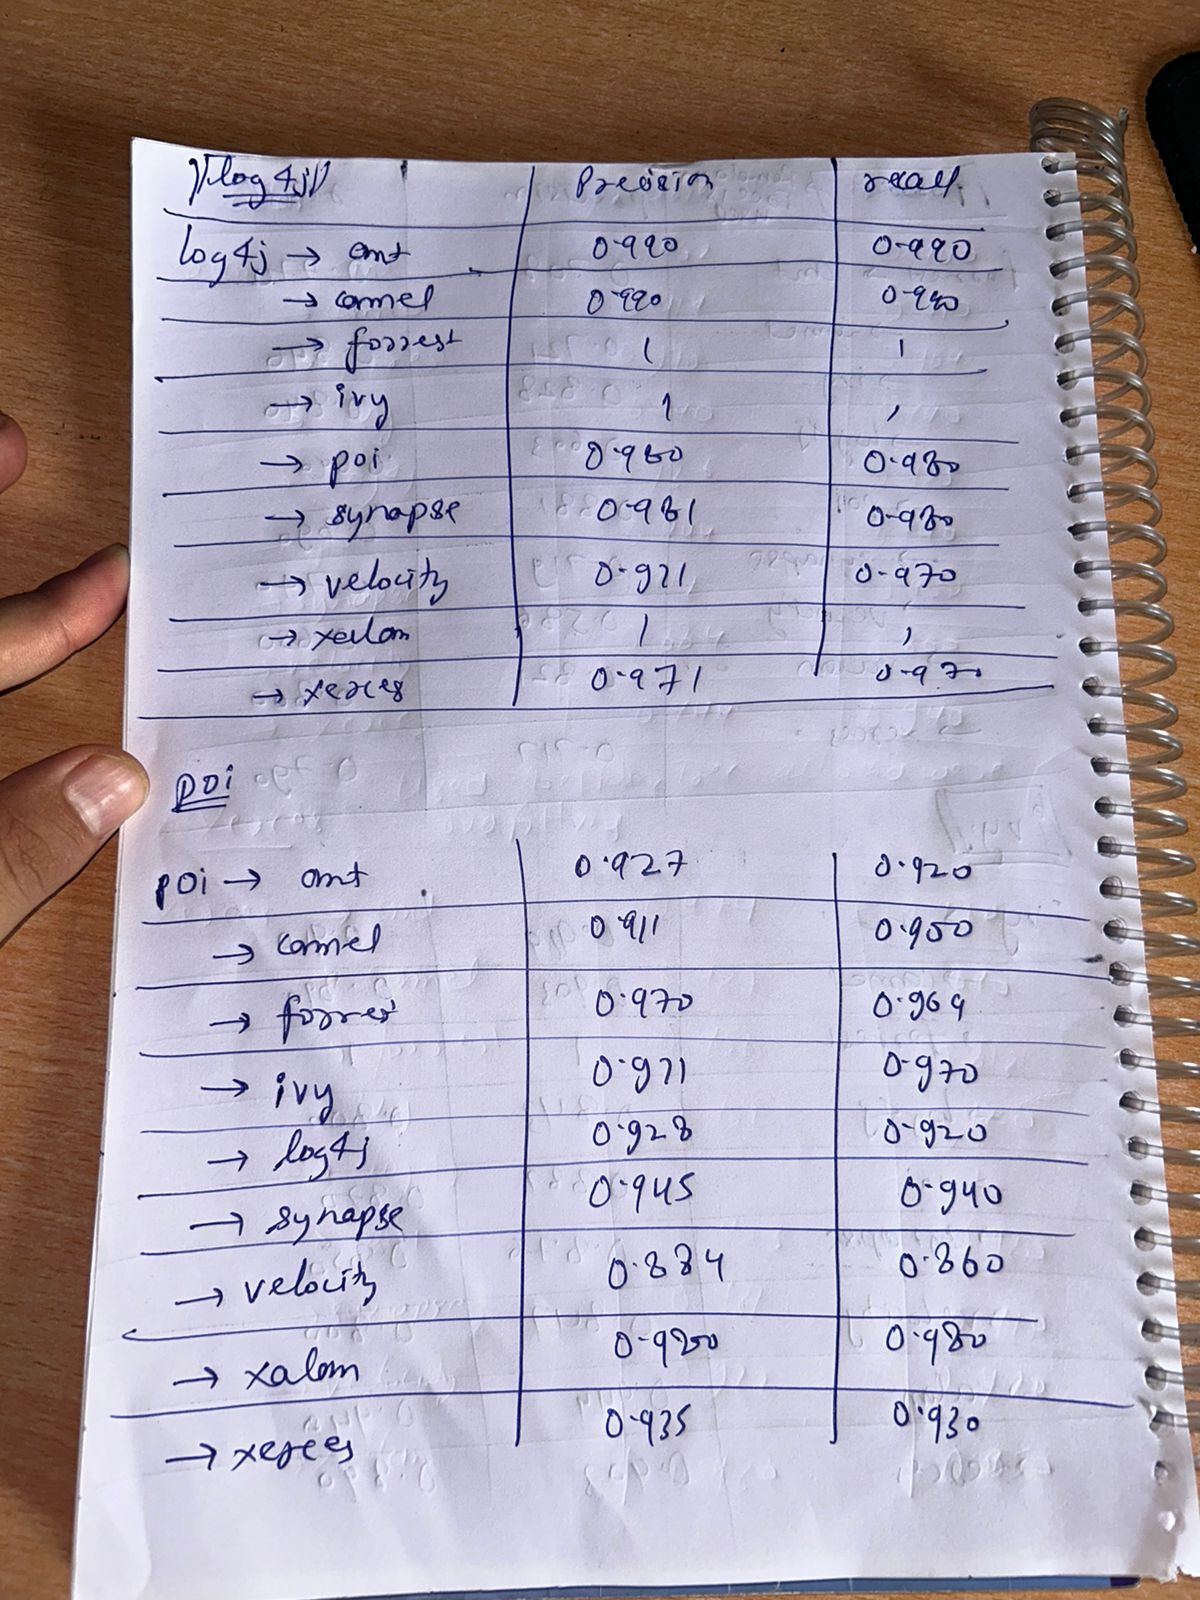 log4j Precision recall
log4j → ant 0.990 0.990
→ camel 0.990 0.990
→ forrest 1 1
→ ivy 1 1
→ poi 0.980 0.980
→ synapse 0.981 0.980
→ velocity 0.971 0.970
→ xalan 1 1
→ xerces 0.971 0.970
poi
poi → ant 0.927 0.920
→ camel 0.911 0.950
→ forres 0.970 0.969
→ ivy 0.971 0.970
→ log4j 0.928 0.920
→ synapse 0.945 0.940
→ velocity 0.884 0.860
→ xalan 0.980 0.980
→ xerces 0.935 0.930